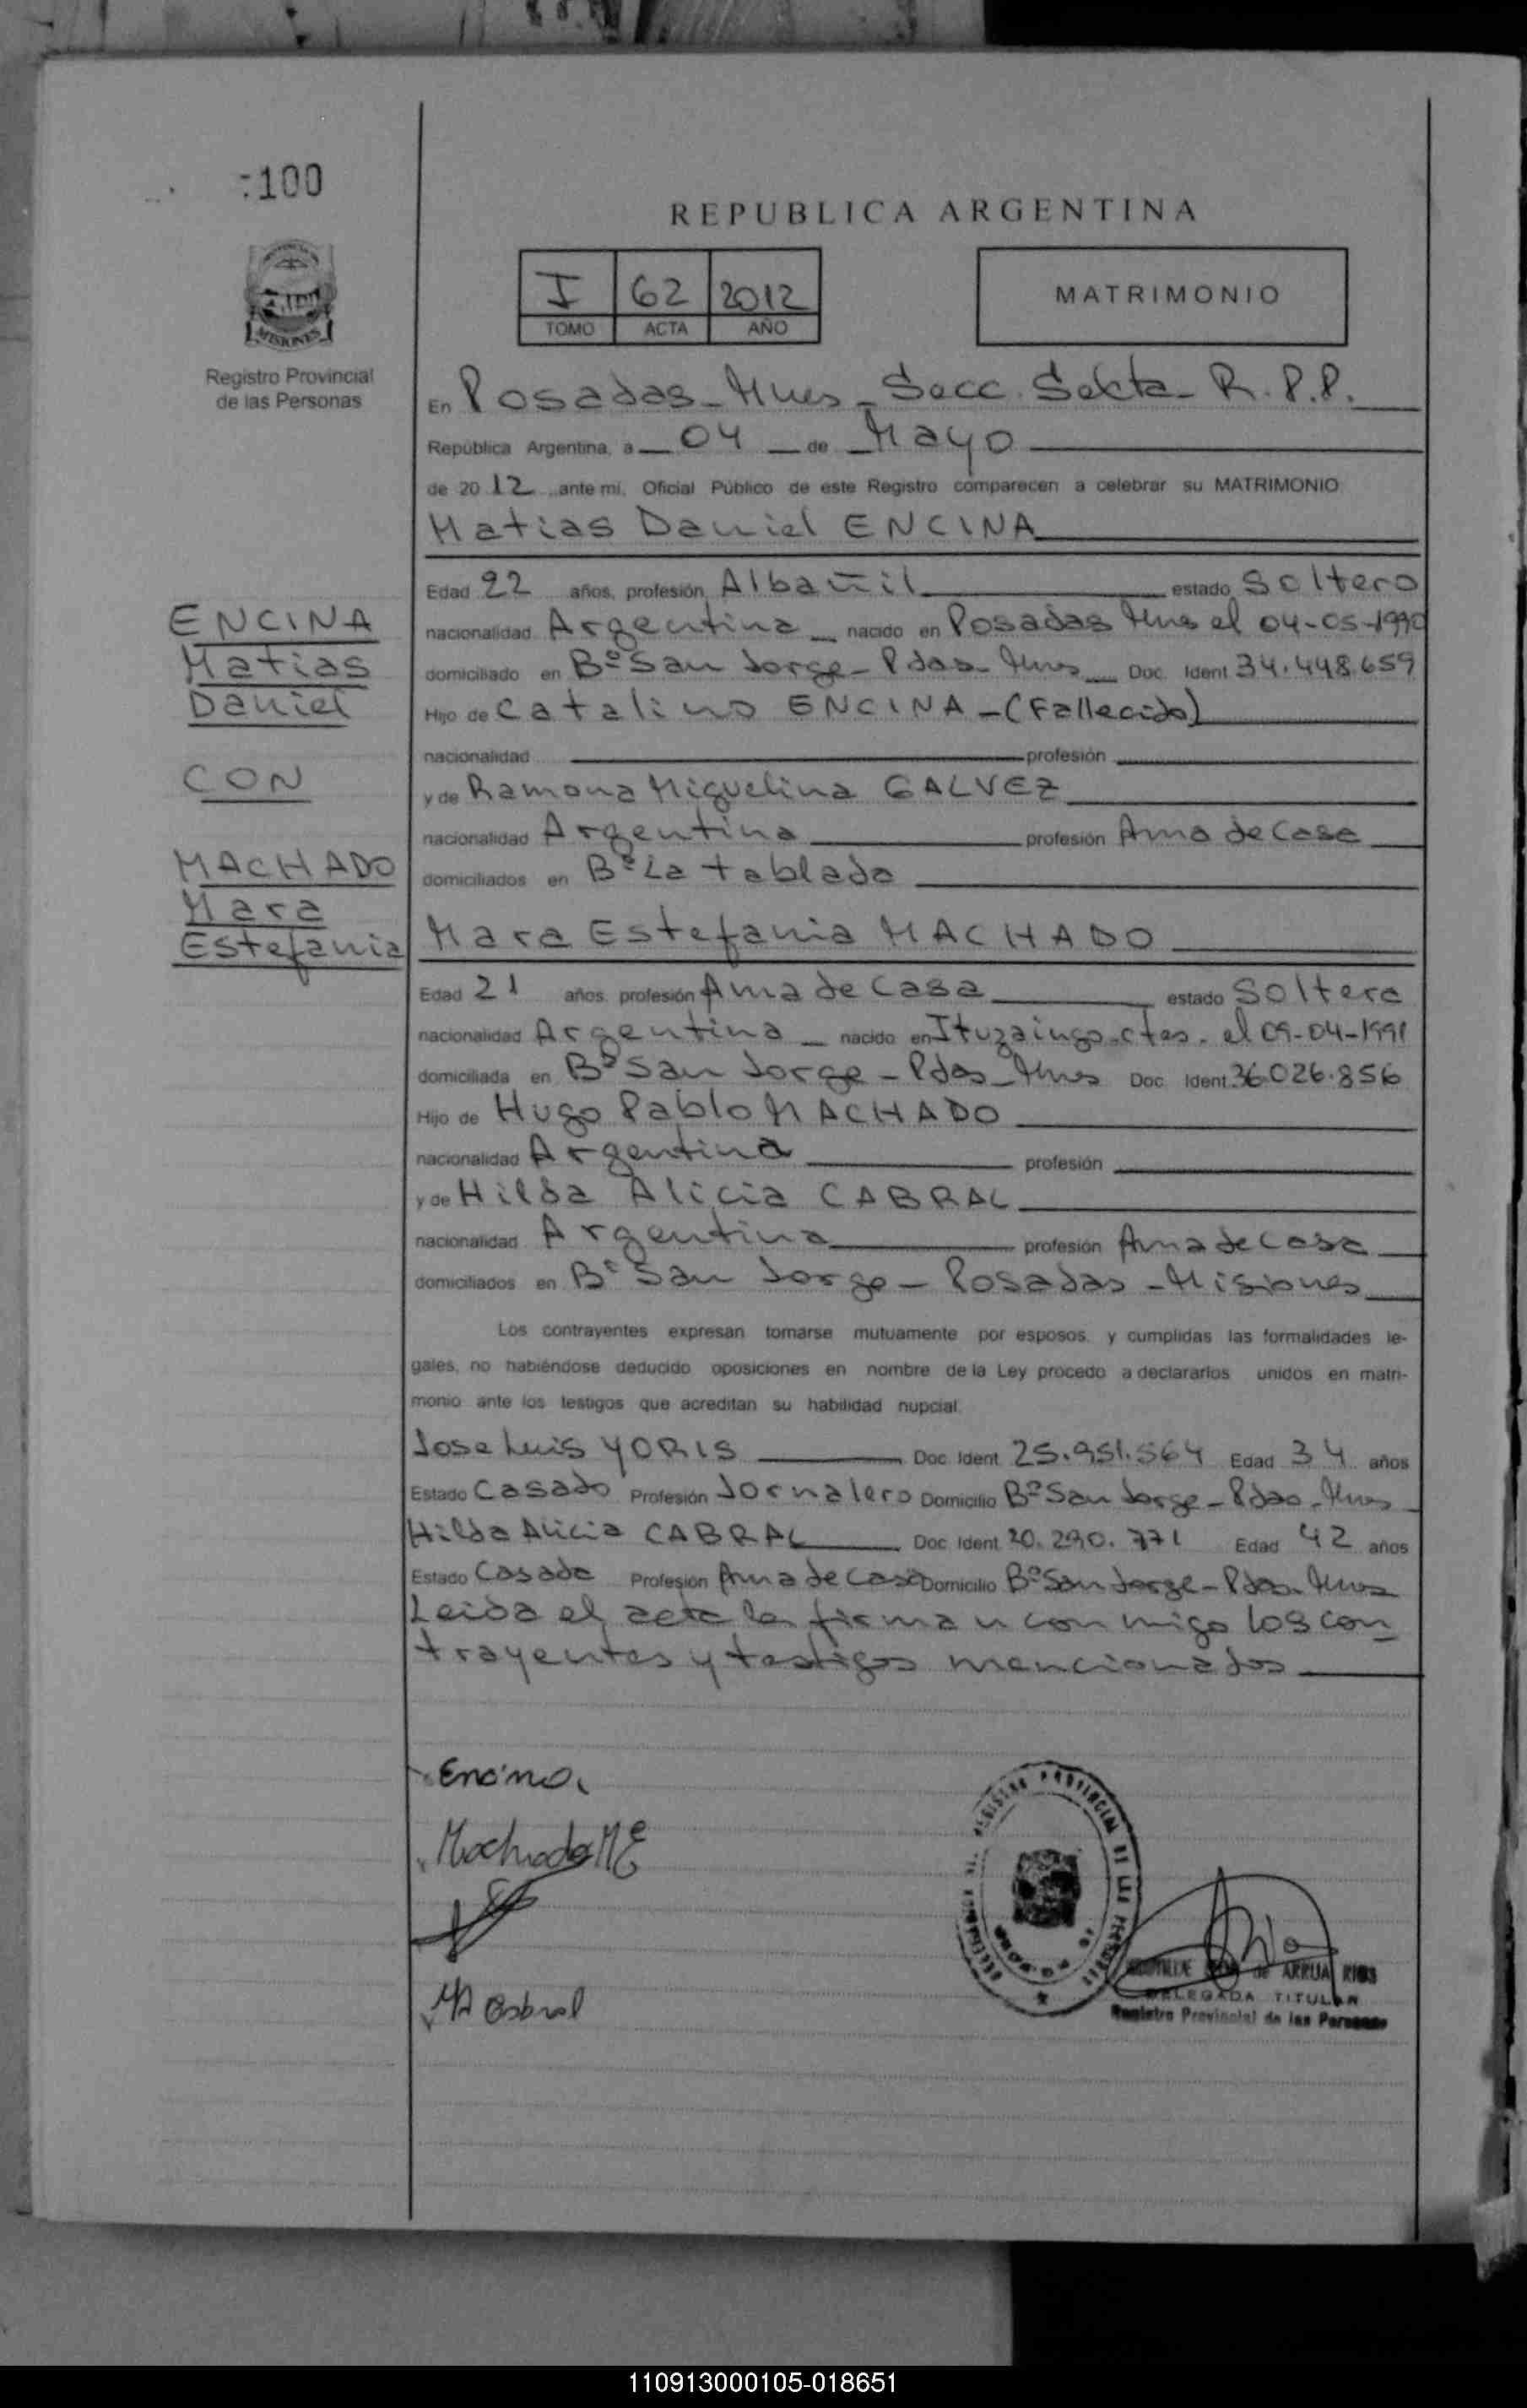 :100
REPUBLICA ARGENTINA
I 62 2012
TOMO ACTA AÑO
MATRIMONIO
MISIONES
Registro Provincial
de las Personas
En Posadas - Mnes - Secc. Sexta - R.P.P.
República Argentina, a 04 de Mayo
de 2012 ante mi, Oficial Público de este Registro comparecen a celebrar su MATRIMONIO
Matias Daniel ENCINA
Edad 22 años, profesión Albañil estado Soltero
nacionalidad Argentina nacido en Posadas Mnes el 04-05-1990
domiciliado en Bº San Jorge - Pdas - Mnes Doc. Ident 34.448.659
Hijo de Catalino ENCINA - (Fallecido)
nacionalidad profesión
y de Ramona Miguelina GALVEZ
nacionalidad Argentina profesión Ama de Casa
domiciliados en Bº La tablada
ENCINA
Matias
Daniel
CON
MACHADO
Mara
Estefania
Mara Estefania MACHADO
Edad 21 años, profesión Ama de Casa estado Soltera
nacionalidad Argentina nacido en Ituzaingo - ctes - el 09-04-1991
domiciliada en Bº San Jorge - Pdas - Mnes Doc. Ident. 36.026.856
Hijo de Hugo Pablo MACHADO
nacionalidad Argentina profesión
y de Hilda Alicia CABRAL
nacionalidad Argentina profesión Ama de Casa
domiciliados en Bº San Jorge - Posadas - Misiones
Los contrayentes expresan tomarse mutuamente por esposos, y cumplidas las formalidades le-
gales, no habiéndose deducido oposiciones en nombre de la Ley procedo a declararlos unidos en matri-
monio ante los testigos que acreditan su habilidad nupcial.
Jose Luis YORIS Doc. Ident. 25.951.564 Edad 34 años
Estado Casado Profesión Jornalero Domicilio Bº San Jorge - Pdas - Mnes
Hilda Alicia CABRAL Doc. Ident. 20.290.771 Edad 42 años
Estado Casada Profesión Ama de Casa Domicilio Bº San Jorge - Pdas - Mnes
Leida el acta la firman con migo los con
trayentes y testigos mencionados
Encina
Machado M E
HA Cabral
REGISTRO PROVINCIAL DE LAS PERSONAS
de ARRUA RIOS
DELEGADA TITULAR
Registro Provincial de las Personas
110913000105-018651